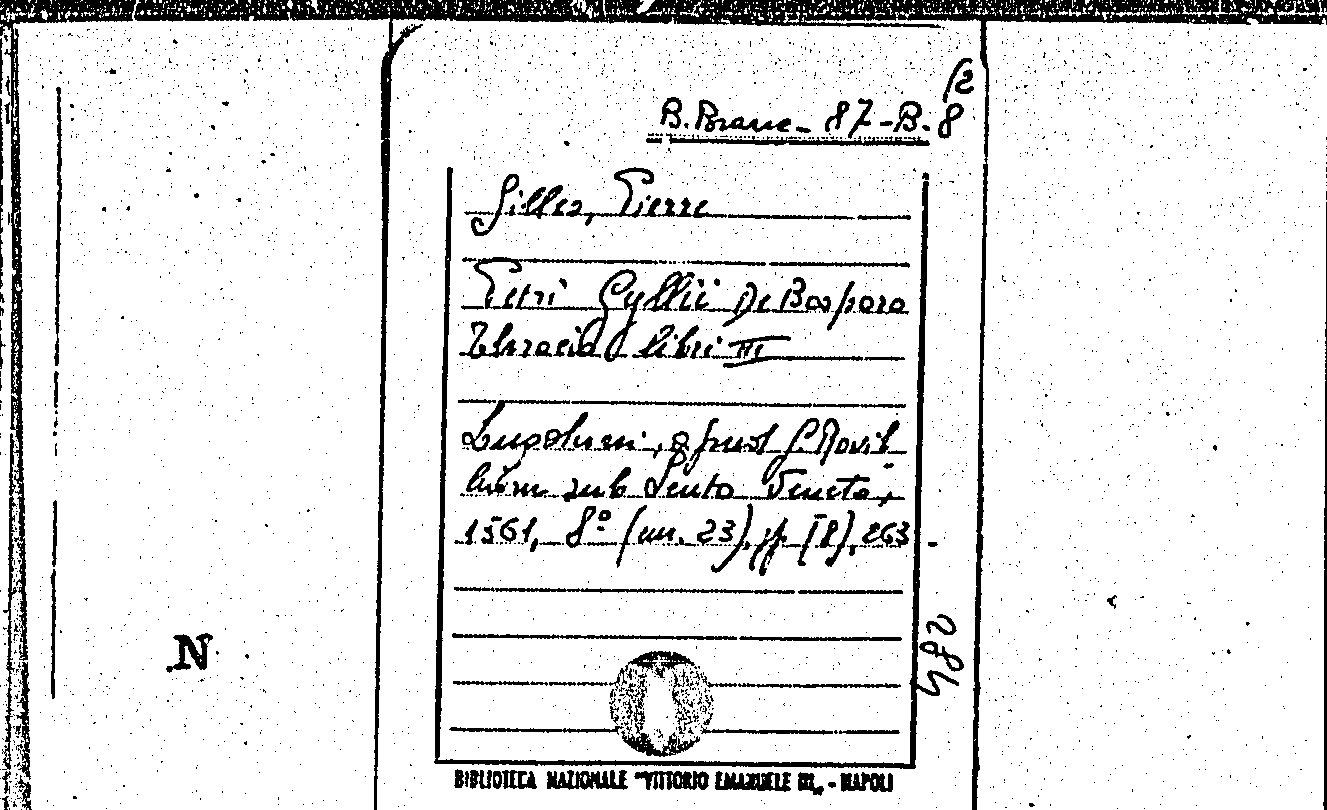 (2
B. Branc. 87-B. 8
Gilles, Pierre
Petri Gyllii De Bosporo
Thracio libri III
Lugduni, apud G. Rovil
lium sub Scuto Veneto,
1561, 8º (cm. 23), pp. [8], 263.
N
BIBLIOTECA NAZIONALE "VITTORIO EMANUELE III„ - NAPOLI